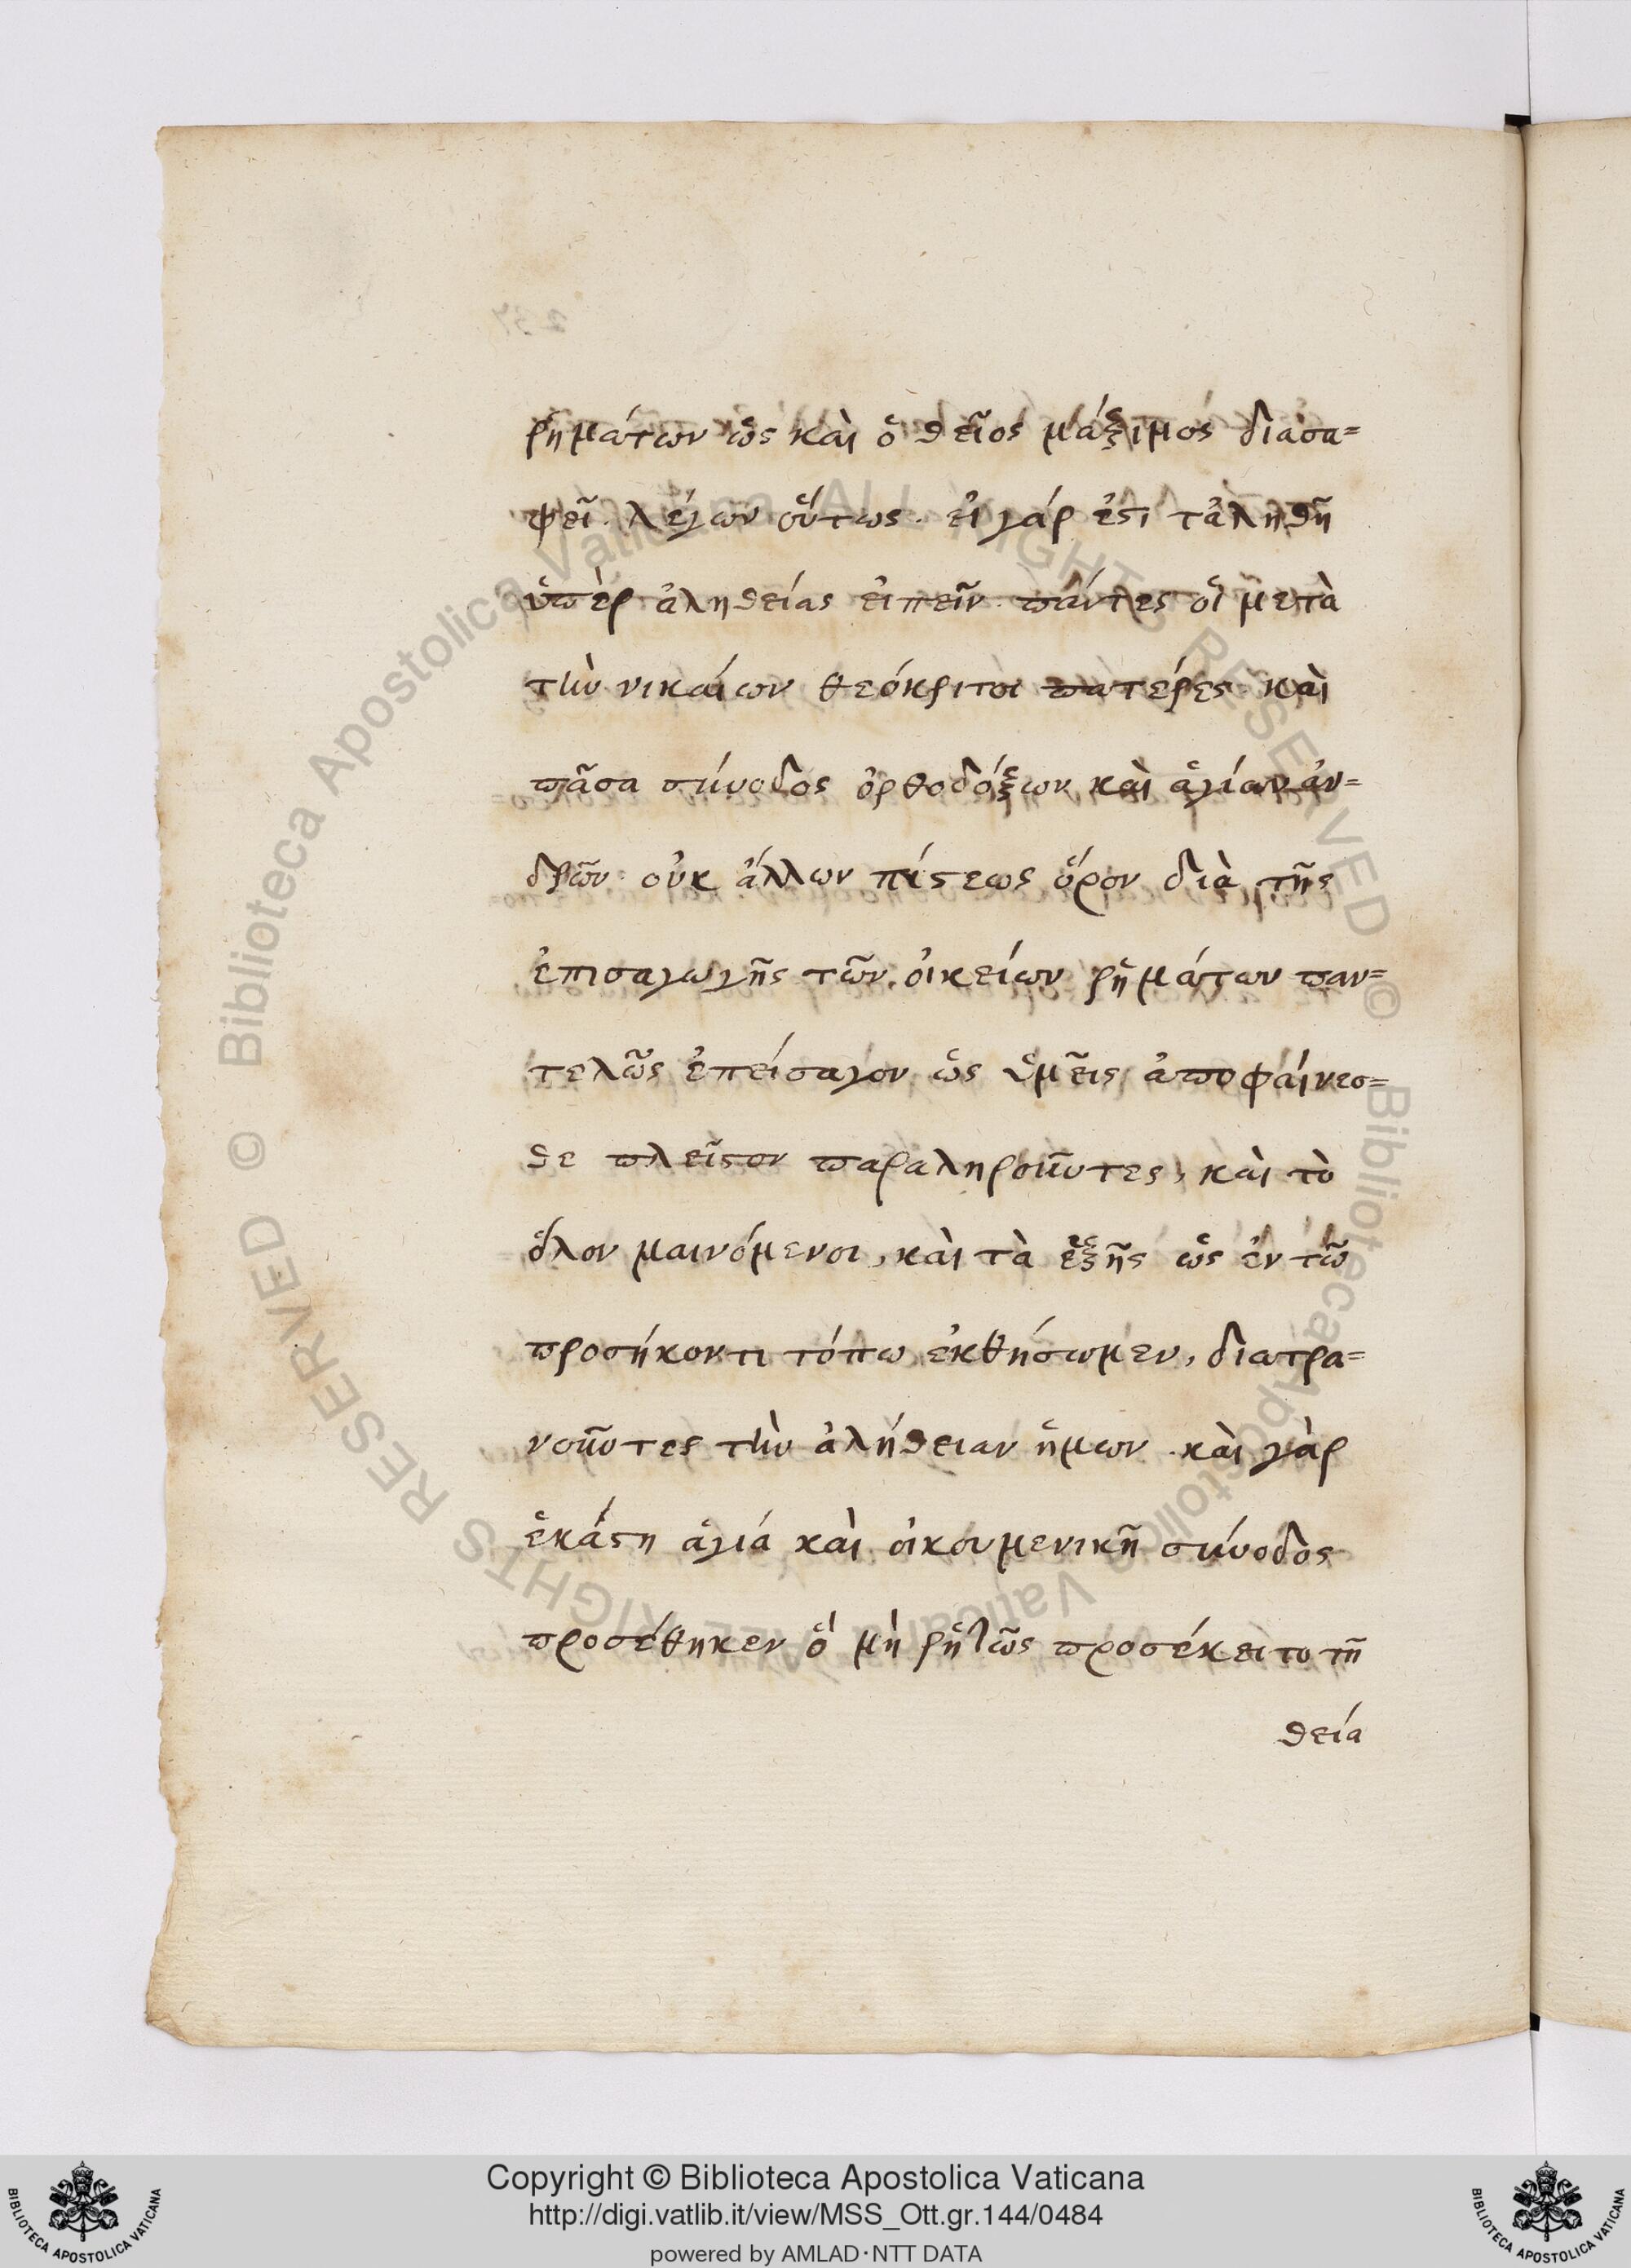 ῥημάτων ὡς καὶ ὁ θεῖος μάξιμος διασα=
φεῖ. λέγων οὕτως. εἰ γάρ ἐστι τἀληθῆ
ὑπὲρ ἀληθείας εἰπεῖν. πάντες οἱ μετὰ
τὴν νικαίων θεόκριτοι πατέρες καὶ
πᾶσα σύνοδος ὀρθοδόξων καὶ ἁγίων ἀν=
δρῶν. οὐκ ἄλλων πίστεως ὅρον διὰ τῆς
ἐπισαγωγῆς τῶν οἰκείων ῥημάτων παν=
τελῶς ἐπείσαγον ὡς ὑμεῖς ἀποφαίνεσ=
θε πλεῖστον παραληροῦντες, καὶ τὸ
ὅλον μαινόμενοι, καὶ τὰ ἑξῆς ὡς ἐν τῶ
προσήκοντι τόπω ἐκθήσωμεν, διατρα=
νοῦντες τὴν ἀλήθειαν ἡμων. καὶ γὰρ
ἑκάστη ἁγιά καὶ οἰκουμενικῆ σύνοδος
προσέθηκεν ὅ μὴ ῥητῶς προσέκειτο τῆ
θεία
Biblioteca Apostolica Vaticana ALL RIGHTS RESERVED © Biblioteca Apostolica Vaticana ALL RIGHTS RESERVED ©
BIBLIOTECA APOSTOLICA VATICANA
Copyright © Biblioteca Apostolica Vaticana
http://digi.vatlib.it/view/MSS_Ott.gr.144/0484
powered by AMLAD·NTT DATA
BIBLIOTECA APOSTOLICA VATICANA